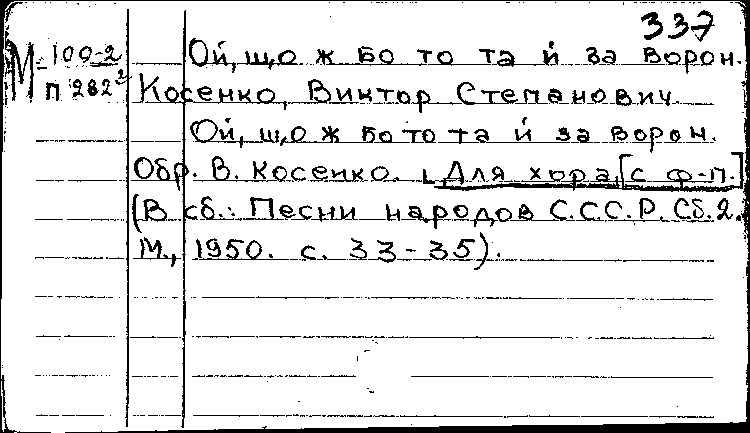 337
М 100-2
П 282²
Ой, що ж бо то та й за ворон.
Косенко, Виктор Степанович.
Ой, що ж бо то та й за ворон.
Обр. В. Косенко. Для хора [с ф-п.]
(В сб.: Песни народов С.С.С.Р. Сб.2.
М., 1950. с. 33-35).